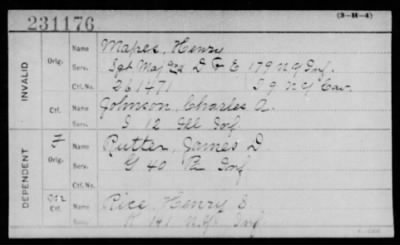 (3-H-4)
231176
INVALID
Orig.
Name Mapes, Henry
Serv. Sgt Maj D & E 179 N.Y. Inf.
Ctf. No. 261471 I 9 N.Y. Cav.
Ctf.
Name Johnson, Charles A.
Serv. I 12 Ill Inf.
DEPENDENT
Orig.
Name Rutter, James D
Serv. G 40 Pa Inf
Ctf. No.
Ctf.
Name Rice, Henry
Serv. K 141 Inf